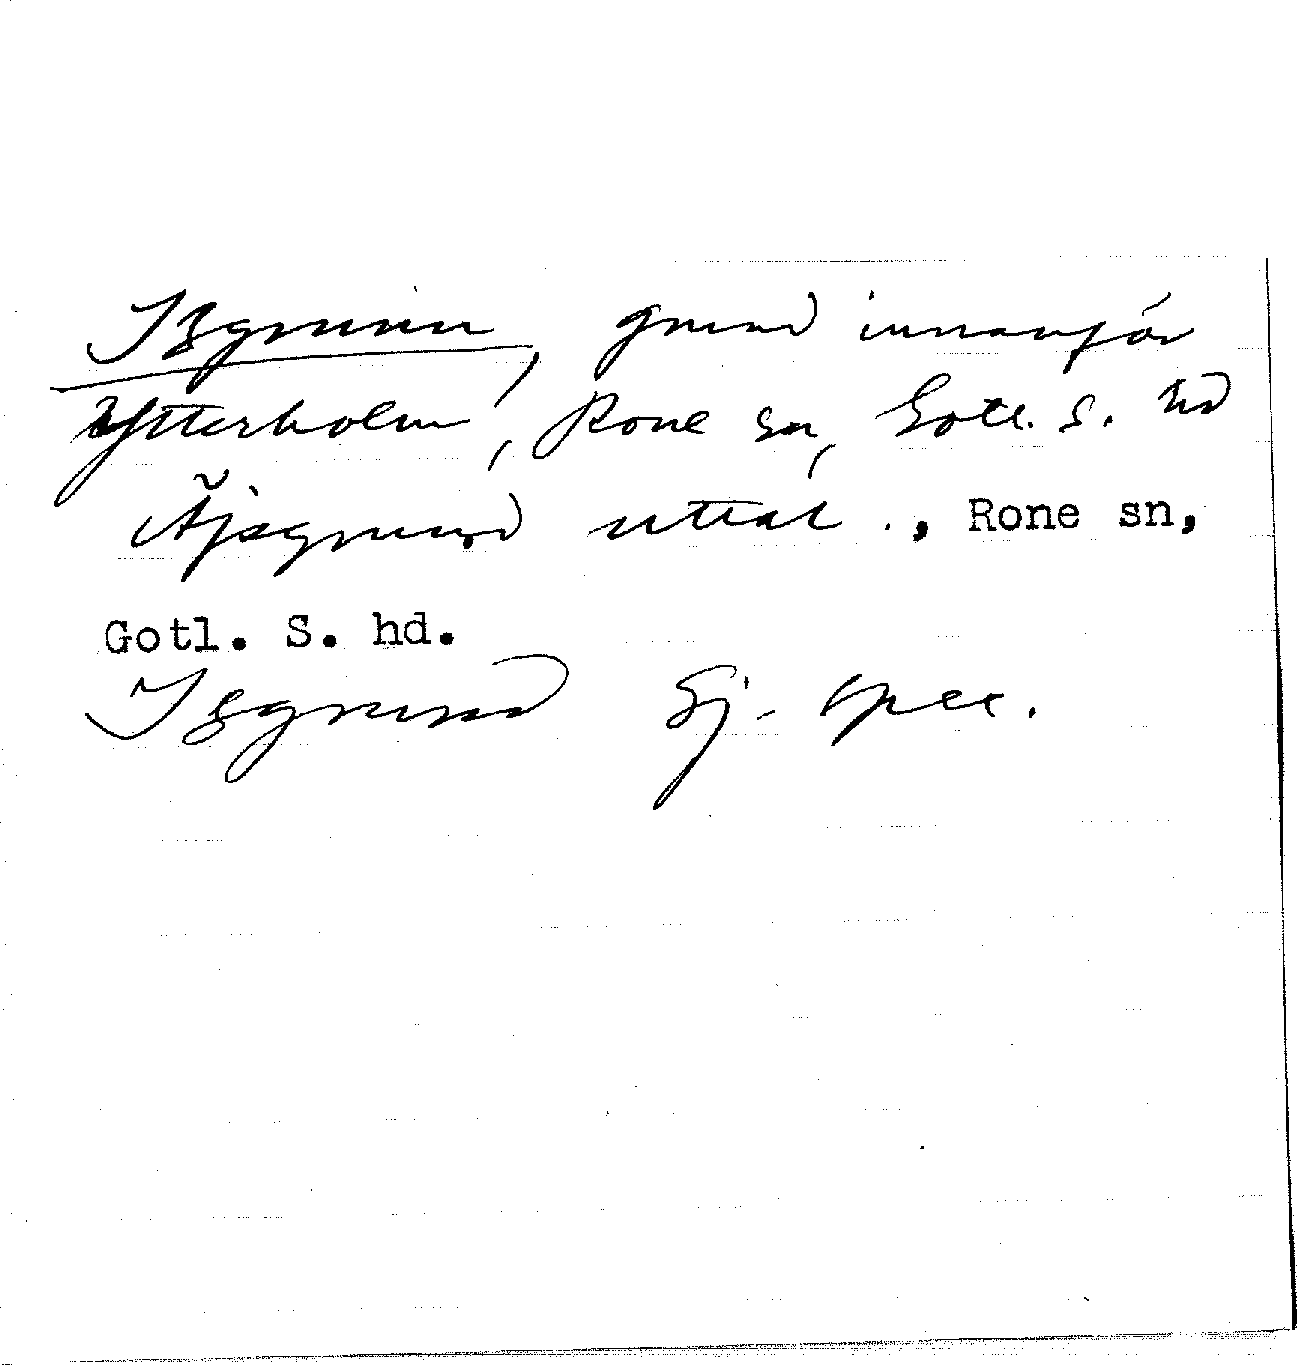 Isgrunn, grund innanför
Ytterholm, Rone sn, Gotl. S. hd
Äjsgrund uttal ., Rone sn,
Gotl. S. hd.
Isgrund Sj. spec.